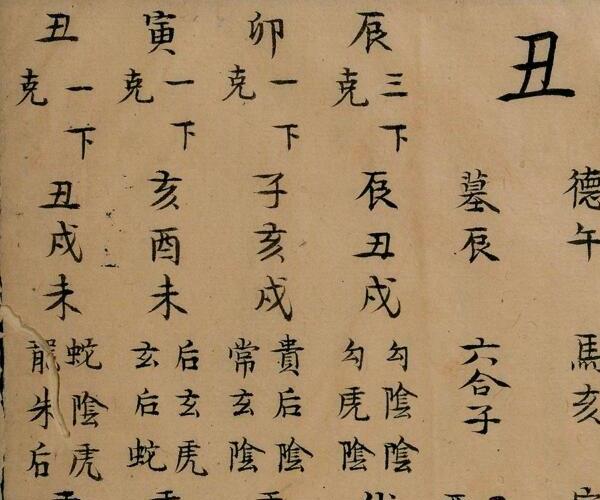 德午 馬亥
丑
墓辰 六合子
辰 三下克 辰丑戌 勾陰陰 勾虎陰
卯 一下克 子亥戌 貴后陰 常玄陰
寅 一下克 亥酉未 后玄虎 玄后蛇
丑 一下克 丑戌未 蛇陰虎 龍朱后